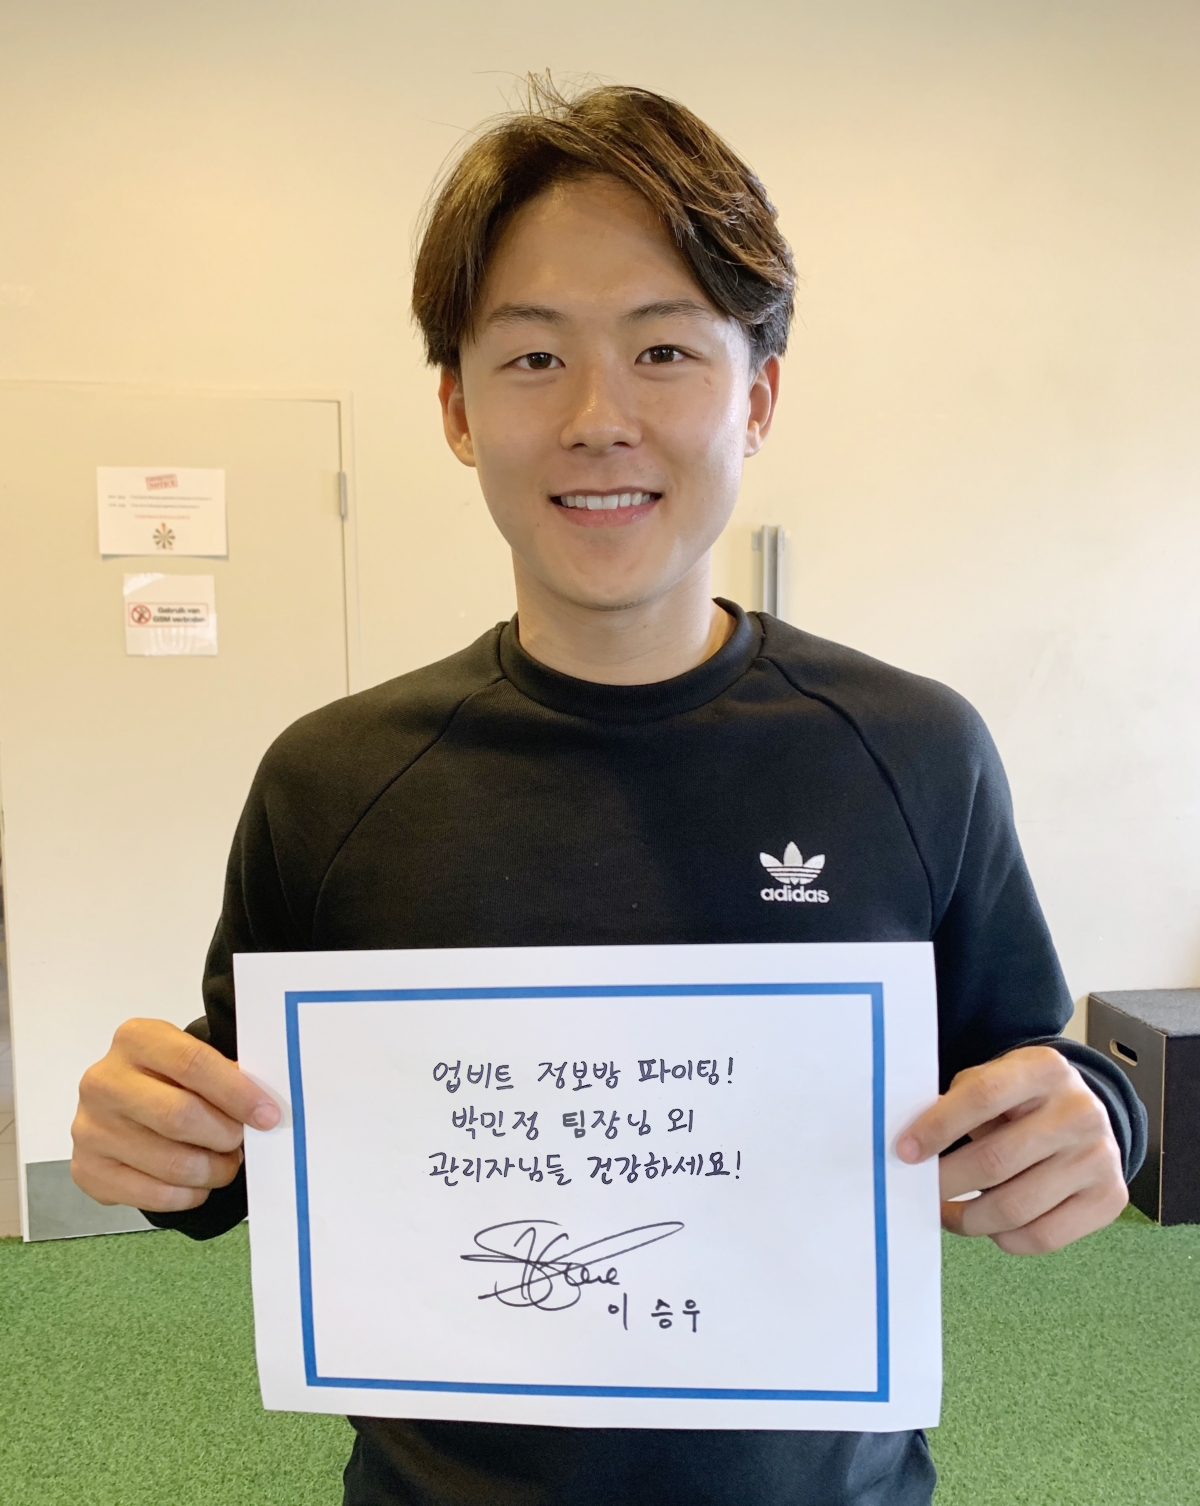 Gebruik van
GSM verboden
adidas
업비트 정보방 파이팅!
박민정 팀장님 외
관리자님들 건강하세요!
이 승우